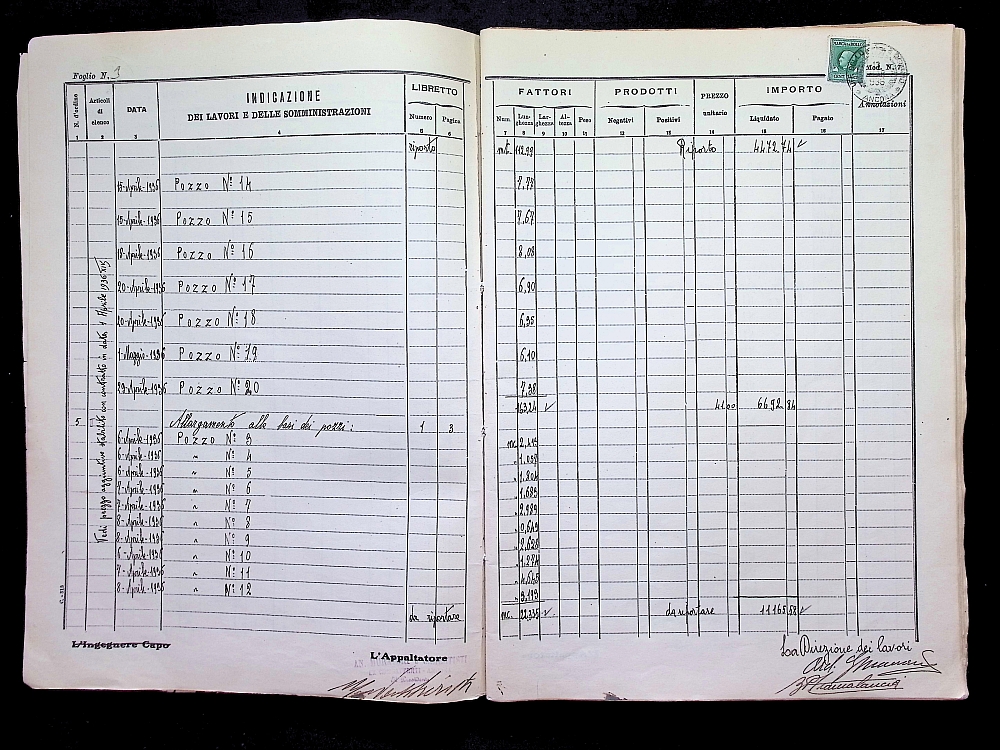 Foglio N. 3
N. d'ordine
Articoli di elenco
DATA
INDICAZIONE
DEI LAVORI E DELLE SOMMINISTRAZIONI
LIBRETTO
Numero Pagina
1 2 3 4 5 6
riporto
15-Aprile-1936 Pozzo Nº 14
15-Aprile-1936 Pozzo Nº 15
18-Aprile-1936 Pozzo Nº 16
20-Aprile-1936 Pozzo Nº 17
20-Aprile-1936 Pozzo Nº 18
1-Maggio-1936 Pozzo Nº 19
29-Aprile-1936 Pozzo Nº 20
Vedi prezzo aggiuntivo stabilito con contratto in data 1 Aprile 1936 XIV
5 Allargamento alle basi dei pozzi: 1 3
6-Aprile-1936 Pozzo Nº 3
6-Aprile-1936 " Nº 4
6-Aprile-1936 " Nº 5
7-Aprile-1936 " Nº 6
7-Aprile-1936 " Nº 7
8-Aprile-1936 " Nº 8
8-Aprile-1936 " Nº 9
6-Aprile-1936 " Nº 10
7-Aprile-1936 " Nº 11
8-Aprile-1936 " Nº 12
da riportare
L'Ingegnere Capo
L'Appaltatore
Mod. N. 7
FATTORI PRODOTTI PREZZO unitario IMPORTO Annotazioni
Num. Lunghezza Larghezza Altezza Peso Negativi Positivi Liquidato Pagato
7 8 9 10 11 12 13 14 15 16 17
ml. 112.99 Riporto 4472.74
7.75
7.67
8,08
6,90
6,35
6,10
7.38
163.24 41.00 6692.84
mc. 2,415
" 1.058
" 1.804
" 1.689
" 2.989
" 0.649
" 2.626
" 1.274
" 4.645
" 3,193
mc. 22.335 da riportare 11165.58
La Direzione dei lavori